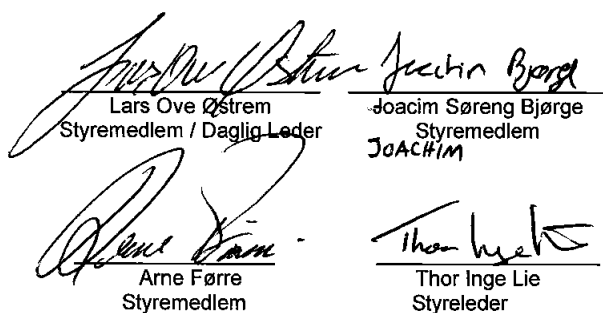 Lars Ove Østrem Joachim Bjørge
Lars Ove Østrem
Styremedlem / Daglig Leder
Joacim Søreng Bjørge
Styremedlem
JOACHIM
Arne Førre
Styremedlem
Thor Inge Lie
Styreleder